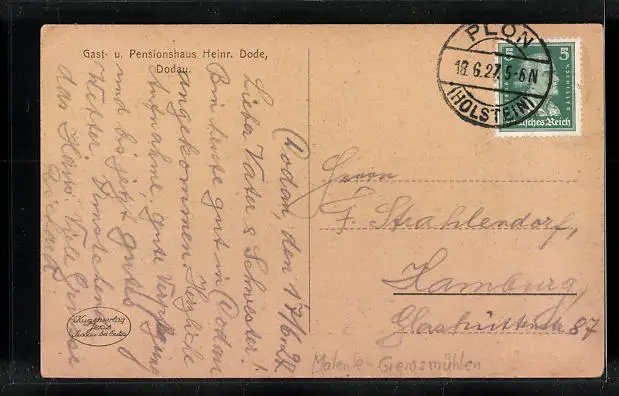 Gast- u. Pensionshaus Heinr. Dode,
Dodau.
Dodau, den 17/6.27
Lieber Vater & Schwester!
Bin heute gut in Dodau
angekommen. Herzliche
Aufnahme, gute Verpflegung
und bis jetzt gutes
Wetter.
das Haus. Viele Grüsse
Richard
Kunstverlag
PLÖN
18.6.27.5-6N
(HOLSTEIN)
5
5
V. SCHILLER
Deutsches Reich
Herrn
F. Strahlendorf,
Hamburg
Glashüttenstr 87
Malente-Gremsmühlen